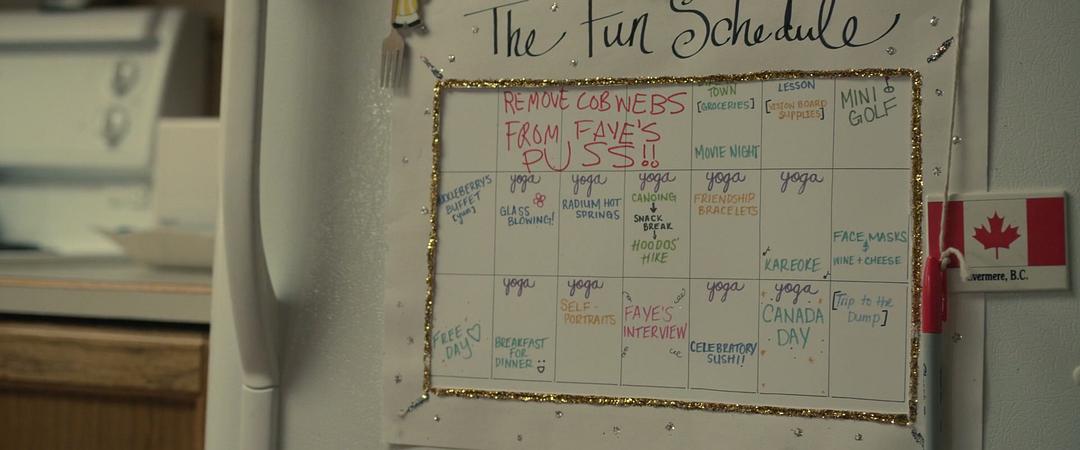 The Fun Schedule
REMOVE COBWEBS
FROM FAYE'S
PUSS!!
TOWN
[GROCERIES]
MOVIE NIGHT
LESSON
[VISION BOARD
SUPPLIES]
MINI
GOLF
BUFFET
[yum]
yoga
GLASS
BLOWING!
yoga
RADIUM HOT
SPRINGS
yoga
CANOING
SNACK
BREAK
HOODOS'
HIKE
yoga
FRIENDSHIP
BRACELETS
yoga
KAREOKE
FACE MASKS
&
WINE + CHEESE
FREE
DAY
yoga
BREAKFAST
FOR
DINNER
yoga
SELF-
PORTRAITS
FAYE'S
INTERVIEW
yoga
CELEBRATORY
SUSHI!!
yoga
CANADA
DAY
[Trip to the
Dump]
vermere, B.C.